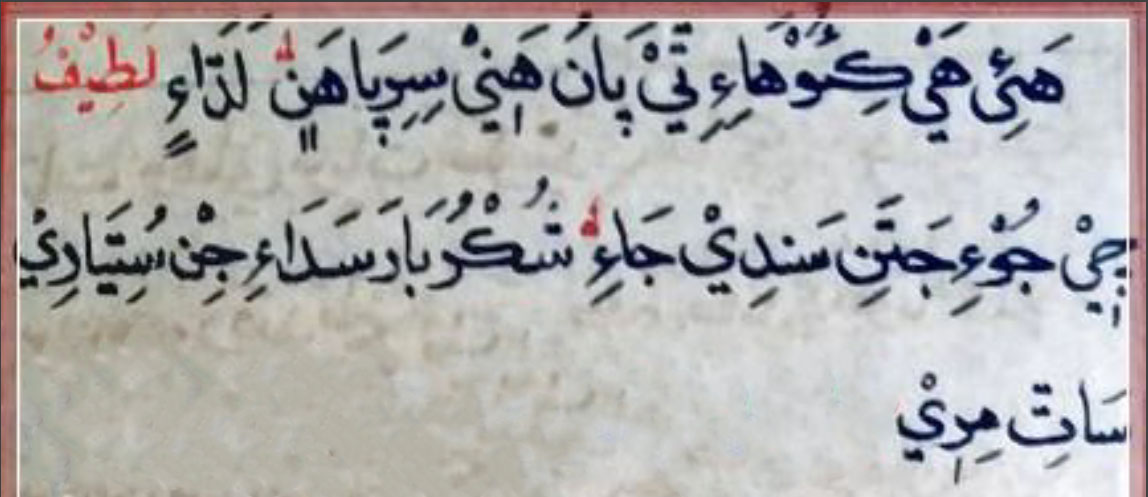 هَئِي هَيْ ڪِئُوْهَاءِ تَيْ پَانَ هَنِيْ سِرِپَاهَنٖ لَدَّاءٍ لَطِيْفُ
جِيْ جُوْءِ جَتَنِ سَندِيْ جَاءِ شُڪْرُ بَارَ سَدَاءِ جِنْ سُتِيَارِيْ
سَاتِّ مِرِيْ